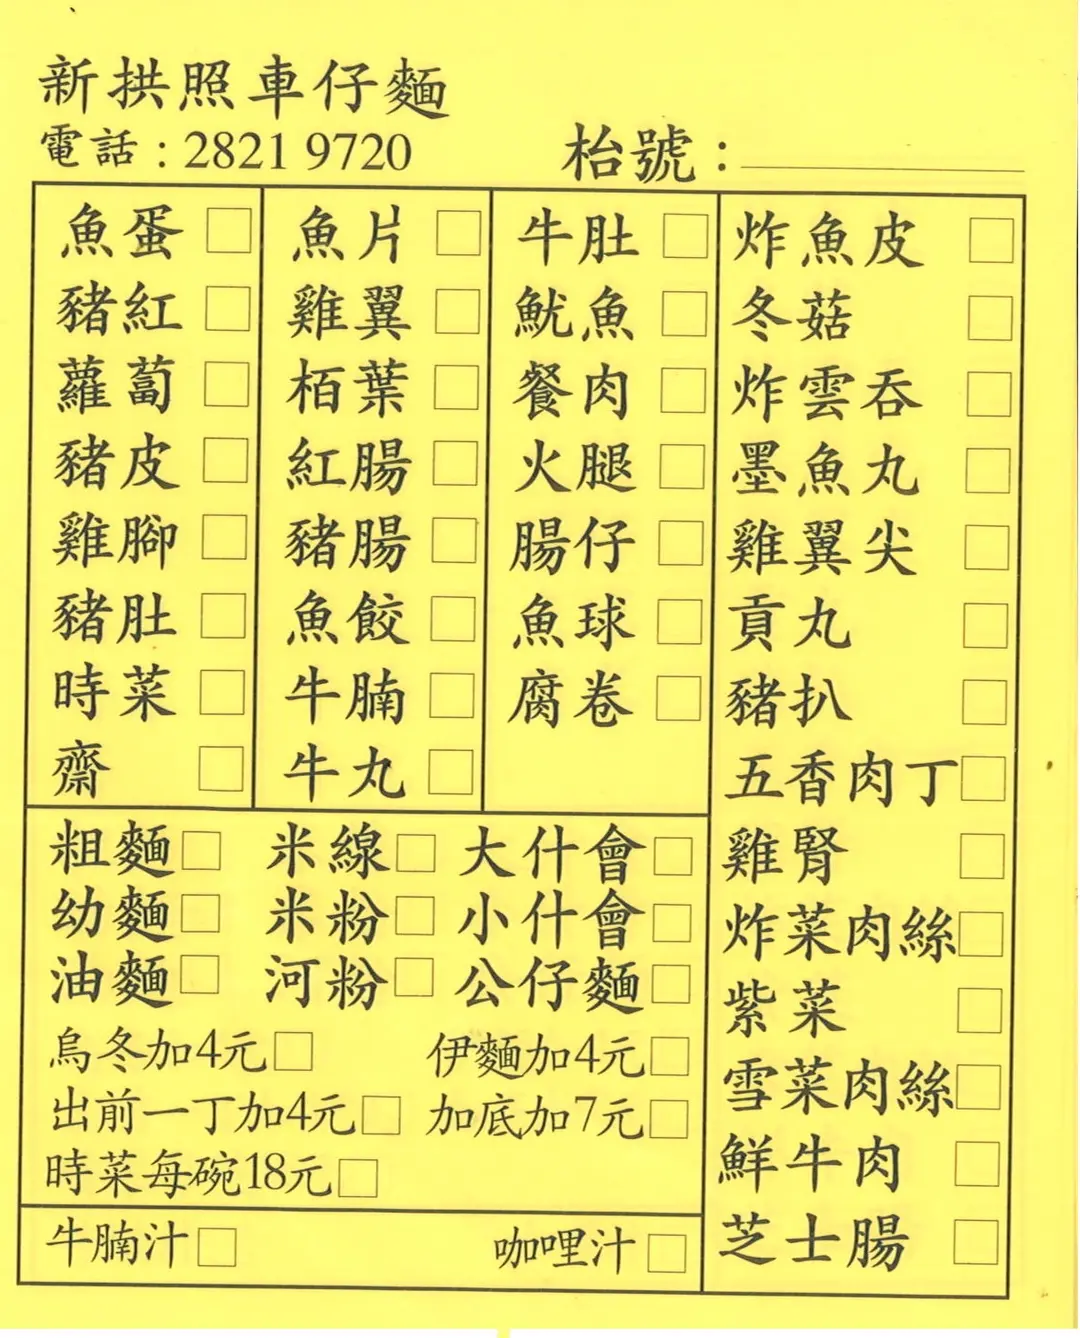 新拱照車仔麵
電話：2821 9720
枱號：
魚蛋 □
豬紅 □
蘿蔔 □
豬皮 □
雞腳 □
豬肚 □
時菜 □
齋 □
魚片 □
雞翼 □
栢葉 □
紅腸 □
豬腸 □
魚餃 □
牛腩 □
牛丸 □
牛肚 □
魷魚 □
餐肉 □
火腿 □
腸仔 □
魚球 □
腐卷 □
炸魚皮 □
冬菇 □
炸雲吞 □
墨魚丸 □
雞翼尖 □
貢丸 □
豬扒 □
五香肉丁 □
雞腎 □
炸菜肉絲 □
紫菜 □
雪菜肉絲 □
鮮牛肉 □
芝士腸 □
粗麵 □ 米線 □ 大什會 □
幼麵 □ 米粉 □ 小什會 □
油麵 □ 河粉 □ 公仔麵 □
烏冬加4元 □ 伊麵加4元 □
出前一丁加4元 □ 加底加7元 □
時菜每碗18元 □
牛腩汁 □ 咖哩汁 □